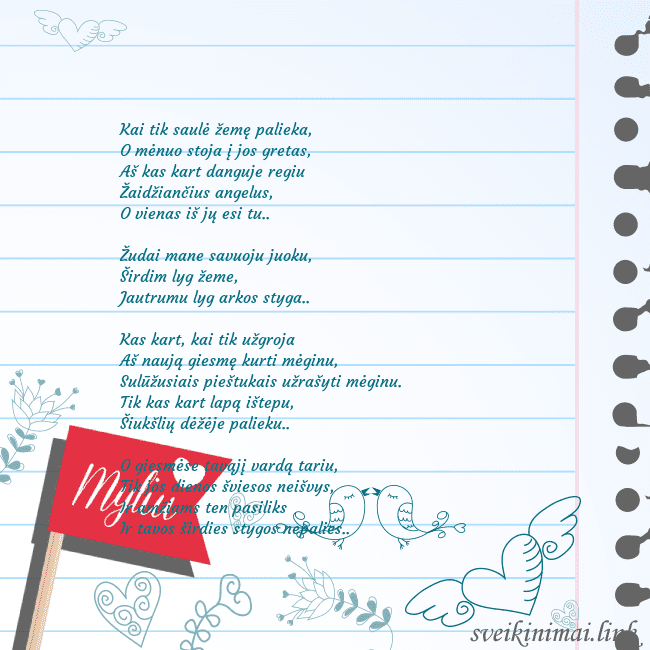 Kai tik saulė žemę palieka,
O mėnuo stoja į jos gretas,
Aš kas kart danguje regiu
Žaidžiančius angelus,
O vienas iš jų esi tu..
Žudai mane savuoju juoku,
Širdim lyg žeme,
Jautrumu lyg arkos styga..
Kas kart, kai tik užgroja
Aš naują giesmę kurti mėginu,
Sulūžusiais pieštukais užrašyti mėginu.
Tik kas kart lapą ištepu,
Šiukšlių dėžėje palieku..
O giesmėse tavąjį vardą tariu,
Tik jos dienos šviesos neišvys,
Ir amžiams ten pasiliks
Ir tavos širdies stygos nepalies..
Myliu
sveikinimai.link